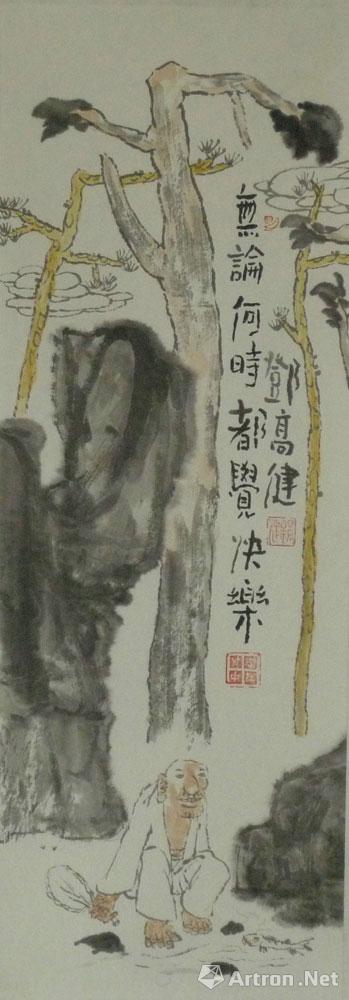 無論何時都覺快樂
鄧高健
Artron.Net